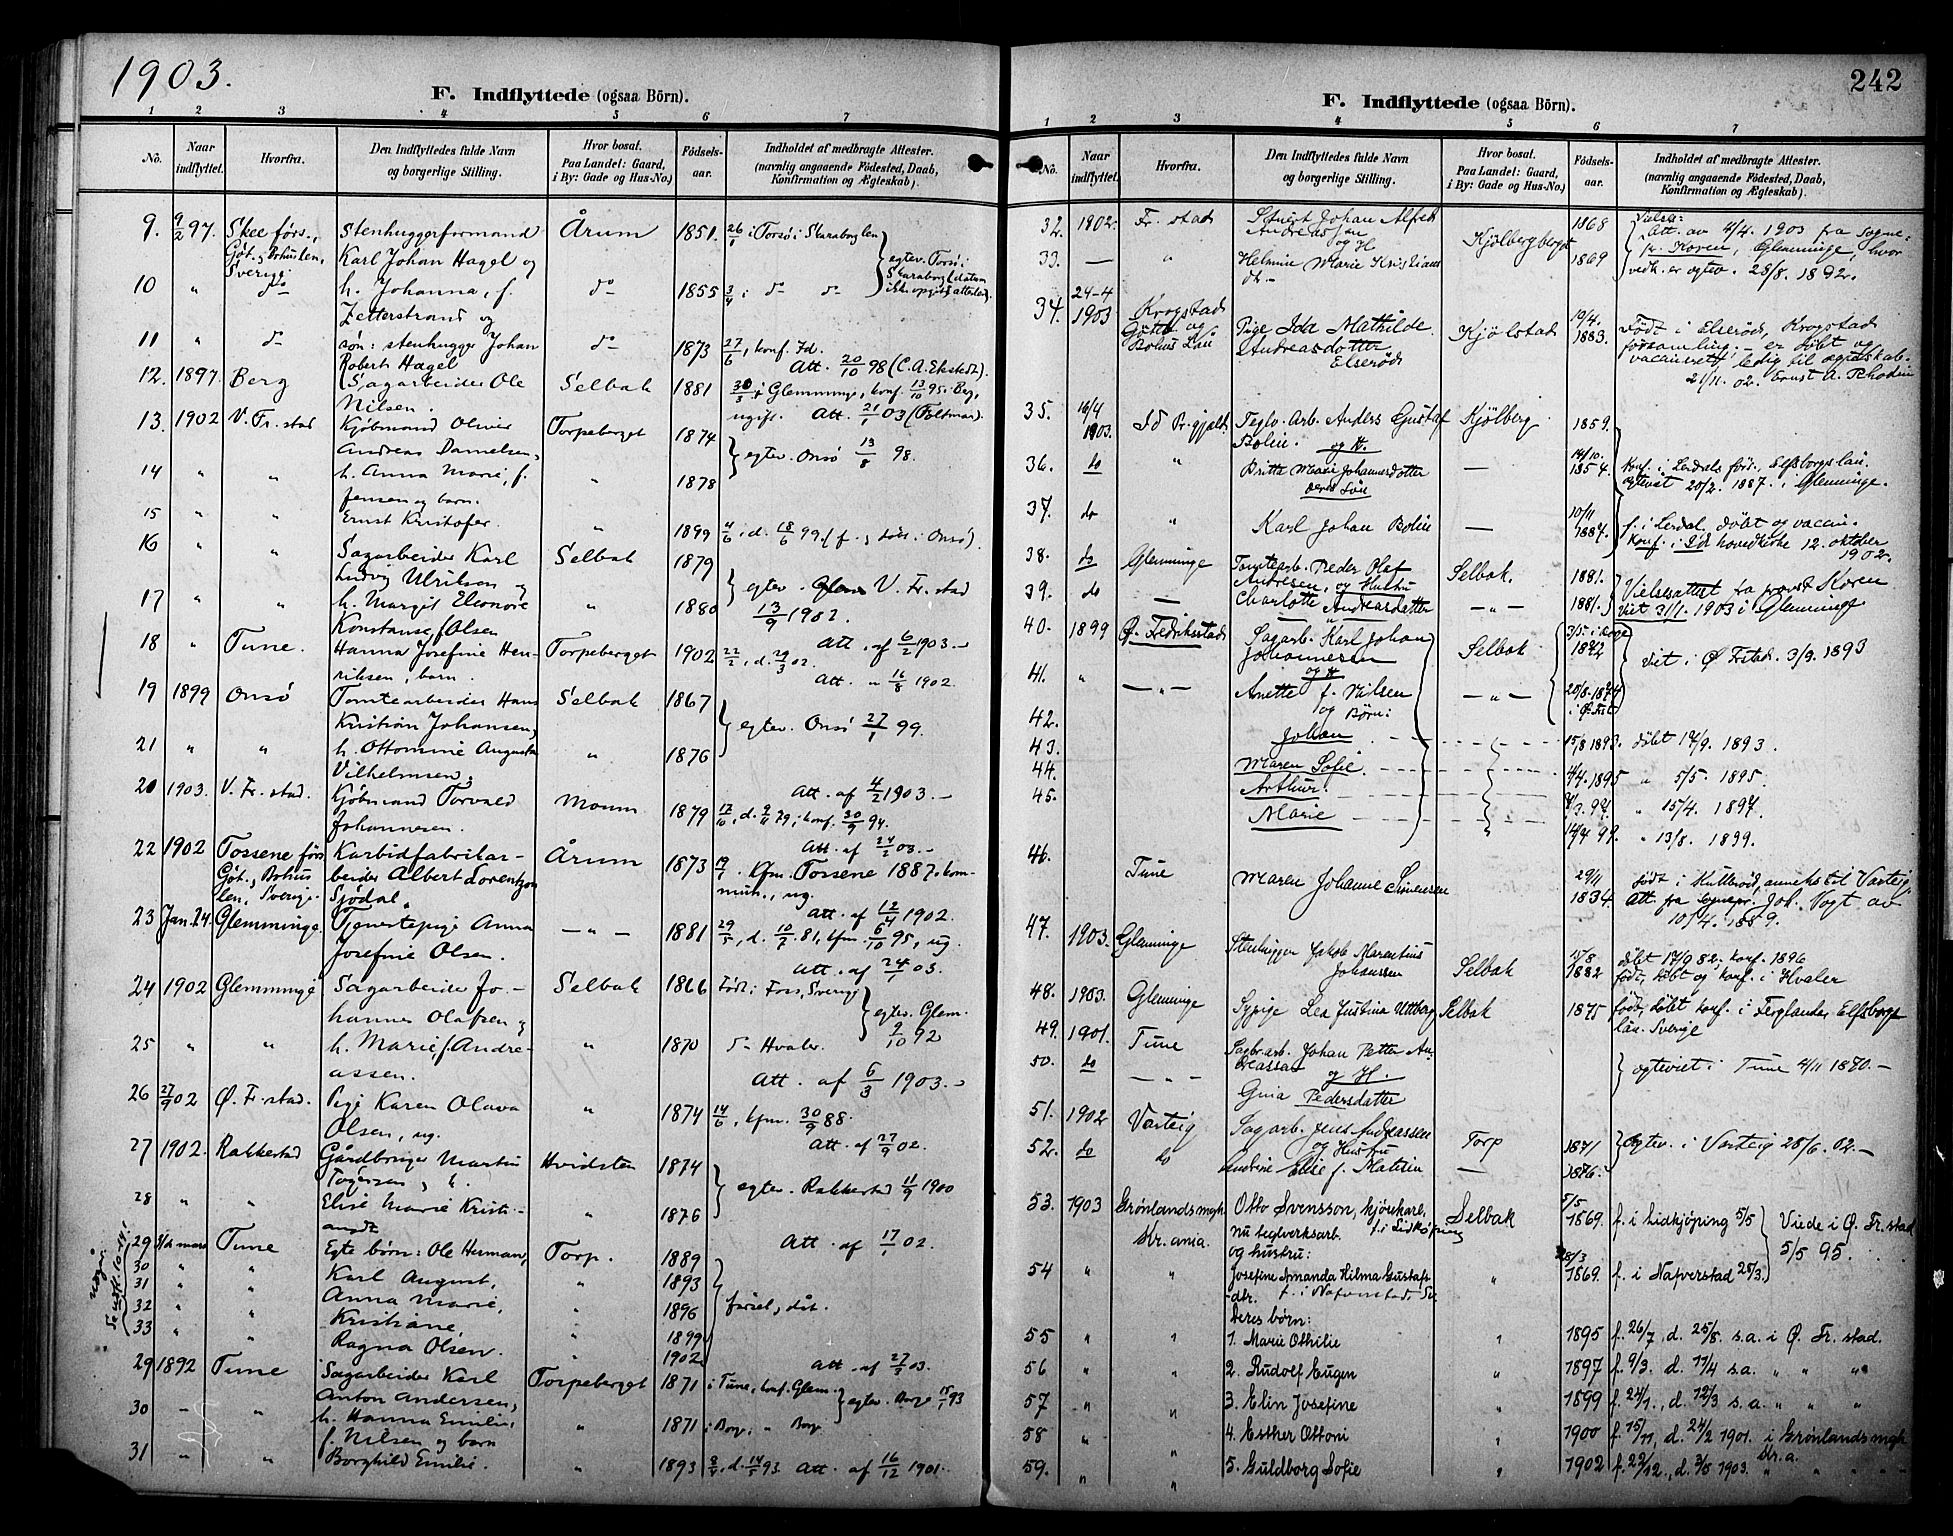 1903.
F. Indflyttede (ogsaa Börn).
1 2 3 4 5 6 7
No. Naar indflyttet. Hvorfra. Den Indflyttedes fulde Navn og borgerlige Stilling. Hvor bosat. Paa Landet: Gaard, i By: Gade og Hus-No.) Födsels-aar. Indholdet af medbragte Attester. (navnlig angaaende Födested, Daab, Konfirmation og Ægteskab).
9. 9/2 97. Skee förs., Stenhuggerformand Årum 1851. 26/1 i Torsö i Skaraborg len
Göt. og Bohuslen, Karl Johan Hagel og egtev. Torsö i
Sverige. Skaraborg (datum
10 " do h. Johanna, f. do 1855 3/4 i do do ikke opgit i attesten).
Zetterstrand og
11 " do søn: stenhugger Johan do 1873 27/6, konf. Id.
Robert Hagel Att. 20/10 98 (C. A. Ekstedt).
12. 1897. Berg Sagarbeider Ole Selbak 1881 30/3 i Glemminge, konf. 13/10 95. Berg,
Nilsen. ugift. Att. 21/1 03 (Foltmar).
13. 1902 V. Fr. stad Kjöbmand Oliver Torpeberget 1874
Andreas Danielsen, egtev. Onsö 13/8 98.
14 " " h. Anna Marie, f. " 1878
Jensen og barn.
15 " " Ernst Kristofer. " 1899 4/6, d. 18/6 99. (f. og døbt i Onsö).
16 " " Sagarbeider Karl Selbak 1879
Ludvig Ulriksen og egtev. V. Fr. stad
17 " " h. Margit Eleonore " 1880 13/9 1902.
Konstanse f. Olsen Att. af 6/2 1903.-
18 " Tune. Hanna Josefine Hen- Torpeberget 1902 22/2, d. 29/3 02.
riksen, barn. Att. " 16/8 1902.
19 1899 Onsö Tomtearbeider Hans Selbak 1867
Kristian Johansen, egtev. Onsö 27/1 99.
21 " " h. Ottomine Augusta " 1876
Vilhelmsen. Att. af 4/2 1903.-
20 1903. V. Fr. stad. Kjöbmand Torvald Moum 1879 17/10, d. 9/11 79, konf. 30/9 94.
Johannesen. Att. af 24/2 03.-
22 1902 Tossene förs Karbidfabrikar- Årum 1873 19/7. Kfm. Tossene 1887. kom-
Göt. og Bohus beider Albert Lorentzon mun., ug.
len, Sverige. Sjödal. Att. af 12/4 1902.
23 Jan. 24 Glemminge Tjenestepige Anna - " - 1881 29/5, d. 10/7 81, kfm. 6/10 95, ug.
Josefine Olsen. Att. af 24/1 03.
24 1902 Glemminge Sagarbeider Jo- Selbak 1866 Födt i Foss, Sverige
hannes Olafsen og egtev. Glem.
25 " " h. Marie f. Andre- " 1870 do Hvaler. 9/10 92
assen. Att. af 6/3 1903.-
26 27/9 02 Ø. Fr. stad. Pige Karen Olava " 1874 14/6, kfm. 30/9 88.
Olsen, ug. Att. af 27/9 02.
27 1902. Rakkestad Gårdbruger Martin Hvidsten 1874
Torgersen, h. egtev. Rakkestad 11/9 1900
28 " " Elise Marie Kristi- " 1876
ansdt Att. af 17/1 02.
29 mars Tune Egte børn: Ole Herman, Torp. 1889
30 " " Karl August, " 1893
31 " " Anna Marie, " 1896 fødsel, dåb.
32 " " Kristiane, " 1899
33 " " Ragna Olsen. " 1902 Att. af 27/3 03.
29 1892 Tune Sagarbeider Karl Torpeberget 1871 i Tune, konf. Glem.
Anton Andersen, egtev. Borge 93
30 - " h. Hanna Emilie, " 1871 i Borge, " Borge
f. Nilsen og barn
31 " " Borghild Emilie. " 1893 d. 14/5 93 Att. af 16/12 1901.-
242
F. Indflyttede (ogsaa Börn).
1 2 3 4 5 6 7
No. Naar indflyttet. Hvorfra. Den Indflyttedes fulde Navn og borgerlige Stilling. Hvor bosat. Paa Landet: Gaard, i By: Gade og Hus-No.) Födsels-aar. Indholdet af medbragte Attester. (navnlig angaaende Födested, Daab, Konfirmation og Ægteskab).
32. 1902. Fr. stad Johan Alfred 1868
Andreassen Kjölberget Att. av 4/4. 1903 fra Sogne-
og H pr. Koren, Glemminge, hvor
33. - " Helmine Marie Kristians 1869 vedk. er egtev. 25/8. 1892.
dr. -
34. 24-4 1903 Krogstad Pige Ida Mathilde Kjölstad 19/4. 1883. Født i Elseröd, Krogstad
Götb. og Bohus Län Andreasdotter forsamling - er døbt og
Elseröd vaccineret, ledig til egteskab.
21/11. 02. Ernst A. Rhodin
35. 16/4 1903. Id Pr.gjæld Teglv. Arb. Anders Gustaf Kjölberg 1859.
Bolin. og H.
36. do " Britta Maria Johannesdotter - 14/10. 1854. Konf. i Lerdals förs., Elfsborgs län.
deres Søn egteviet 20/2. 1887. i Glemminge.
37. do " Karl Johan Bolin - 10/11 1887. f. i Lerdal, døbt og vaccin.
konf. i Idd hovedkirke 12. oktober
1902.
38. do Glemminge Tomtearb. Peder Olaf Selbak. 1881. Vielsesattest fra provst Koren
Andresen, og Hustru
39. do - Charlotte Andreasdatter - " - 1881. viet 31/1. 1903 i Glemminge
40. 1899 Ø. Fredriksstad Sagarb. Karl Johan Selbak 1872 viet i Ø. Fstad. 3/9. 1893
Johannesen
og H
41. " - " - Anette f. Nilsen - " - 20/8. 1874
og Børn: i Ø. Fst
42. Johan 15/8 1893. døbt 17/9. 1893.
43. Maren Sofie. 4/4. 1895 " 5/5. 1895.
44. Arthur. 3. 97. " 15/4. 1897.
45. Marie 14/4 99. " 13/8. 1899.
46. Tune Maren Johanne Simensen 29/11 1834. født i Hullerød, anneks til Varteig.
Att. fra Sognepr. Joh. Vogt av
10/4. 1889.
47. 1903. Glemminge Stenhugger Jakob Marentius Selbak 1882 døbt 17/9 82, konf. 1896
Johanssen født, døbt og konf. i Hvaler
48. 1903. Glemminge Sypige Lea Justina Uttberg Selbak 1875 født, døbt konf. i Ferglanda Elfsborgs
län. Sverige
49. 1901. Tune Sagbr.arb. Johan Petter An-
50. do - " - dreassen og H. egteviet i Tune 4/11 1870. -
Gina Pedersdatter
51. 1902 Varteig Sagarb. Jens Andreassen Torp 1871 Egtev. i Varteig 28/6. 02. -
og Hustru
52. do do Andrine Elise f. Matisen - 1876.
53. 1903 Grønlands mgh. Otto Svensson, kjørekarl, Selbak 5/5 1869. f. i Lidkjöping 5/5 Viede i Ø. Fr. stad
Kr. ania. nu teglverksarb. f. i Lidköping 5/5 95.
og hustru:
54 " " Josefine Amanda Hilma Gustafs " 28/3 1869. f. i Nafverstad 28/3.
-dtr. f. i Nafverstad, Sv.
Deres børn:
55 " " 1. Marie Othilie " 1895 f. 26/7, d. 25/8. s.a. i Ø. Fr. stad.
56 " " 2. Rudolf Eugen " 1897 f. 9/3. d. 11/4 s.a. " " "
57 " " 3. Elin Josefine " 1899 f. 24/1., d. 12/3 s.a. " " "
58 " " 4. Esther Ottoni " 1900 f. 15/11, d. 24/2 1901. i Grønlands mgh.
Kr.a.
59. " " 5. Guldborg Sofie " 1902 f. 22/12., d. 3/5 1903. " " "